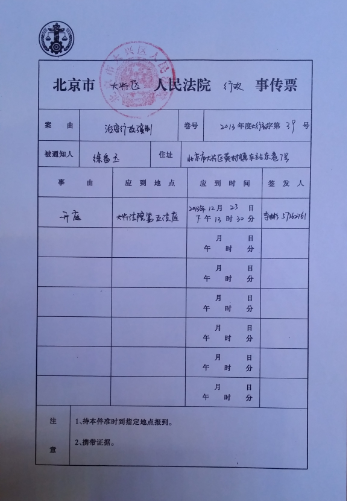 北京市 大兴区 人民法院 行政 事传票
案由 治安行政强制 卷号 2013年度大行初字第39号
被通知人 徐 住址 北京市大兴区黄村镇
事由 应到地点 应到时间 签发人
开庭 大兴法院第五法庭 2013年12月23日
下午13时30分
月 日
午 时 分
月 日
午 时 分
月 日
午 时 分
月 日
午 时 分
月 日
午 时 分
月 日
午 时 分
注意
1、持本件准时到指定地点报到。
2、携带证据。